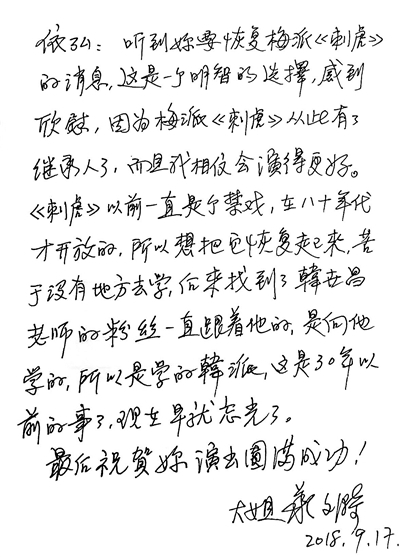 依弘：听到妳要恢复梅派《刺虎》
的消息，这是一个明智的选擇，感到
欣慰，因为梅派《刺虎》从此有了
继承人了，而且我相信会演得更好。
《刺虎》以前一直是个禁戏，在八十年代
才开放的，所以想把它恢复起来，苦
于没有地方去学，后来找到了韓世昌
老师的粉丝一直跟着他的，是向他
学的，所以是学的韓派，这是30年以
前的事了，现在早就忘光了。
最后祝賀妳演出圆满成功！
大姐
2018.9.17.